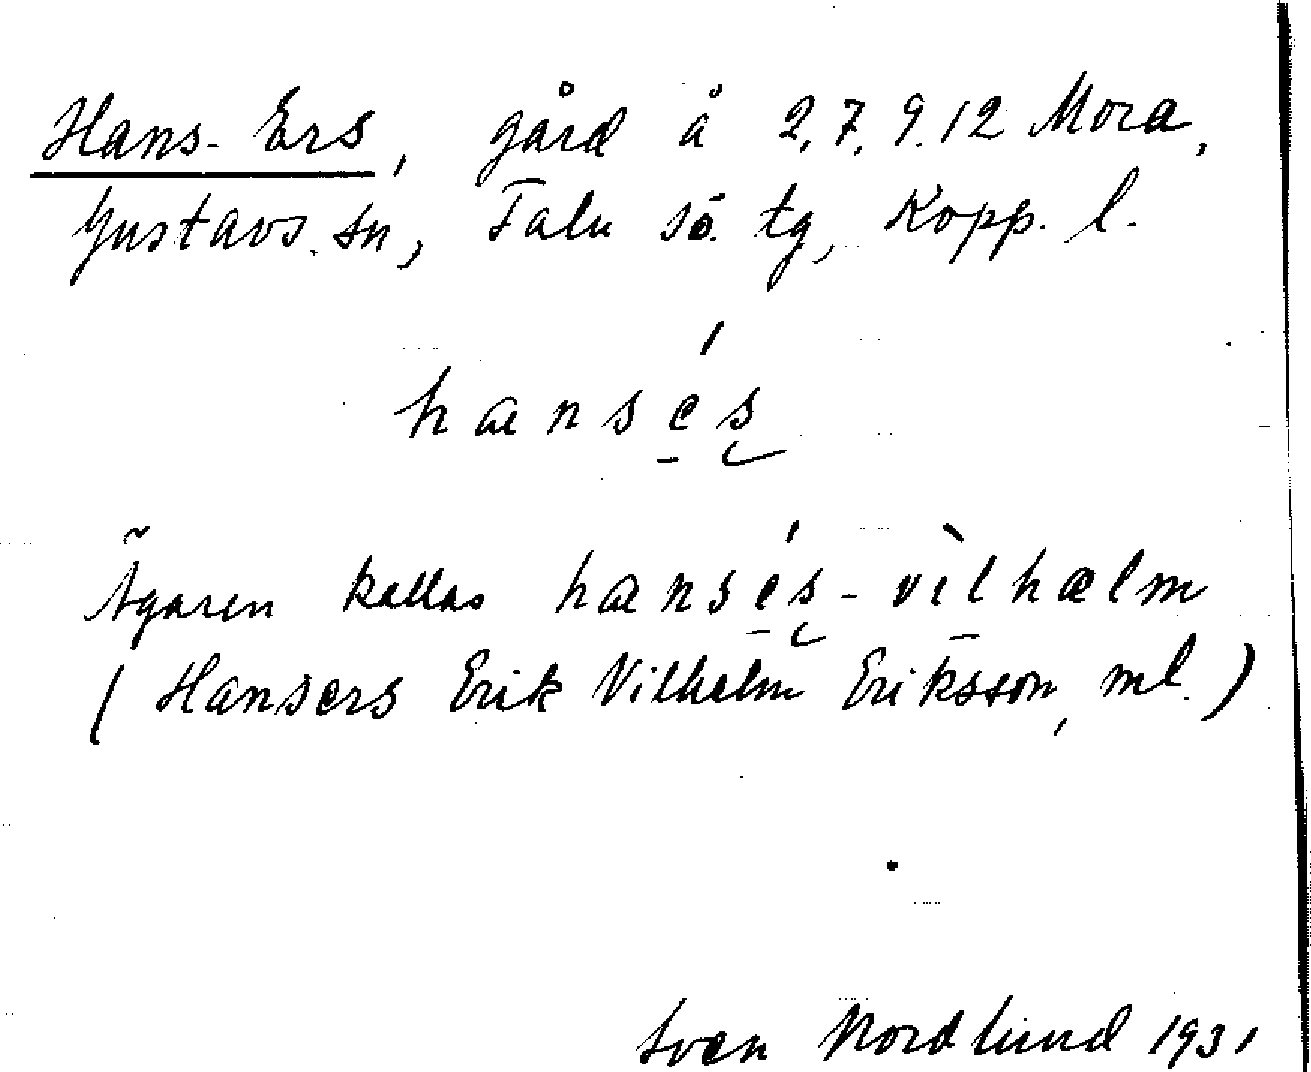 Hans-Ers, gård å 2,7,9.12 Mora,
Gustavs sn, Falu sö. tg, Kopp. l.
hansés
Ägaren kallas hansés-vìlhælm
(Hansers Erik Vilhelm Eriksson, ml.)
Sven Nordlund 1931